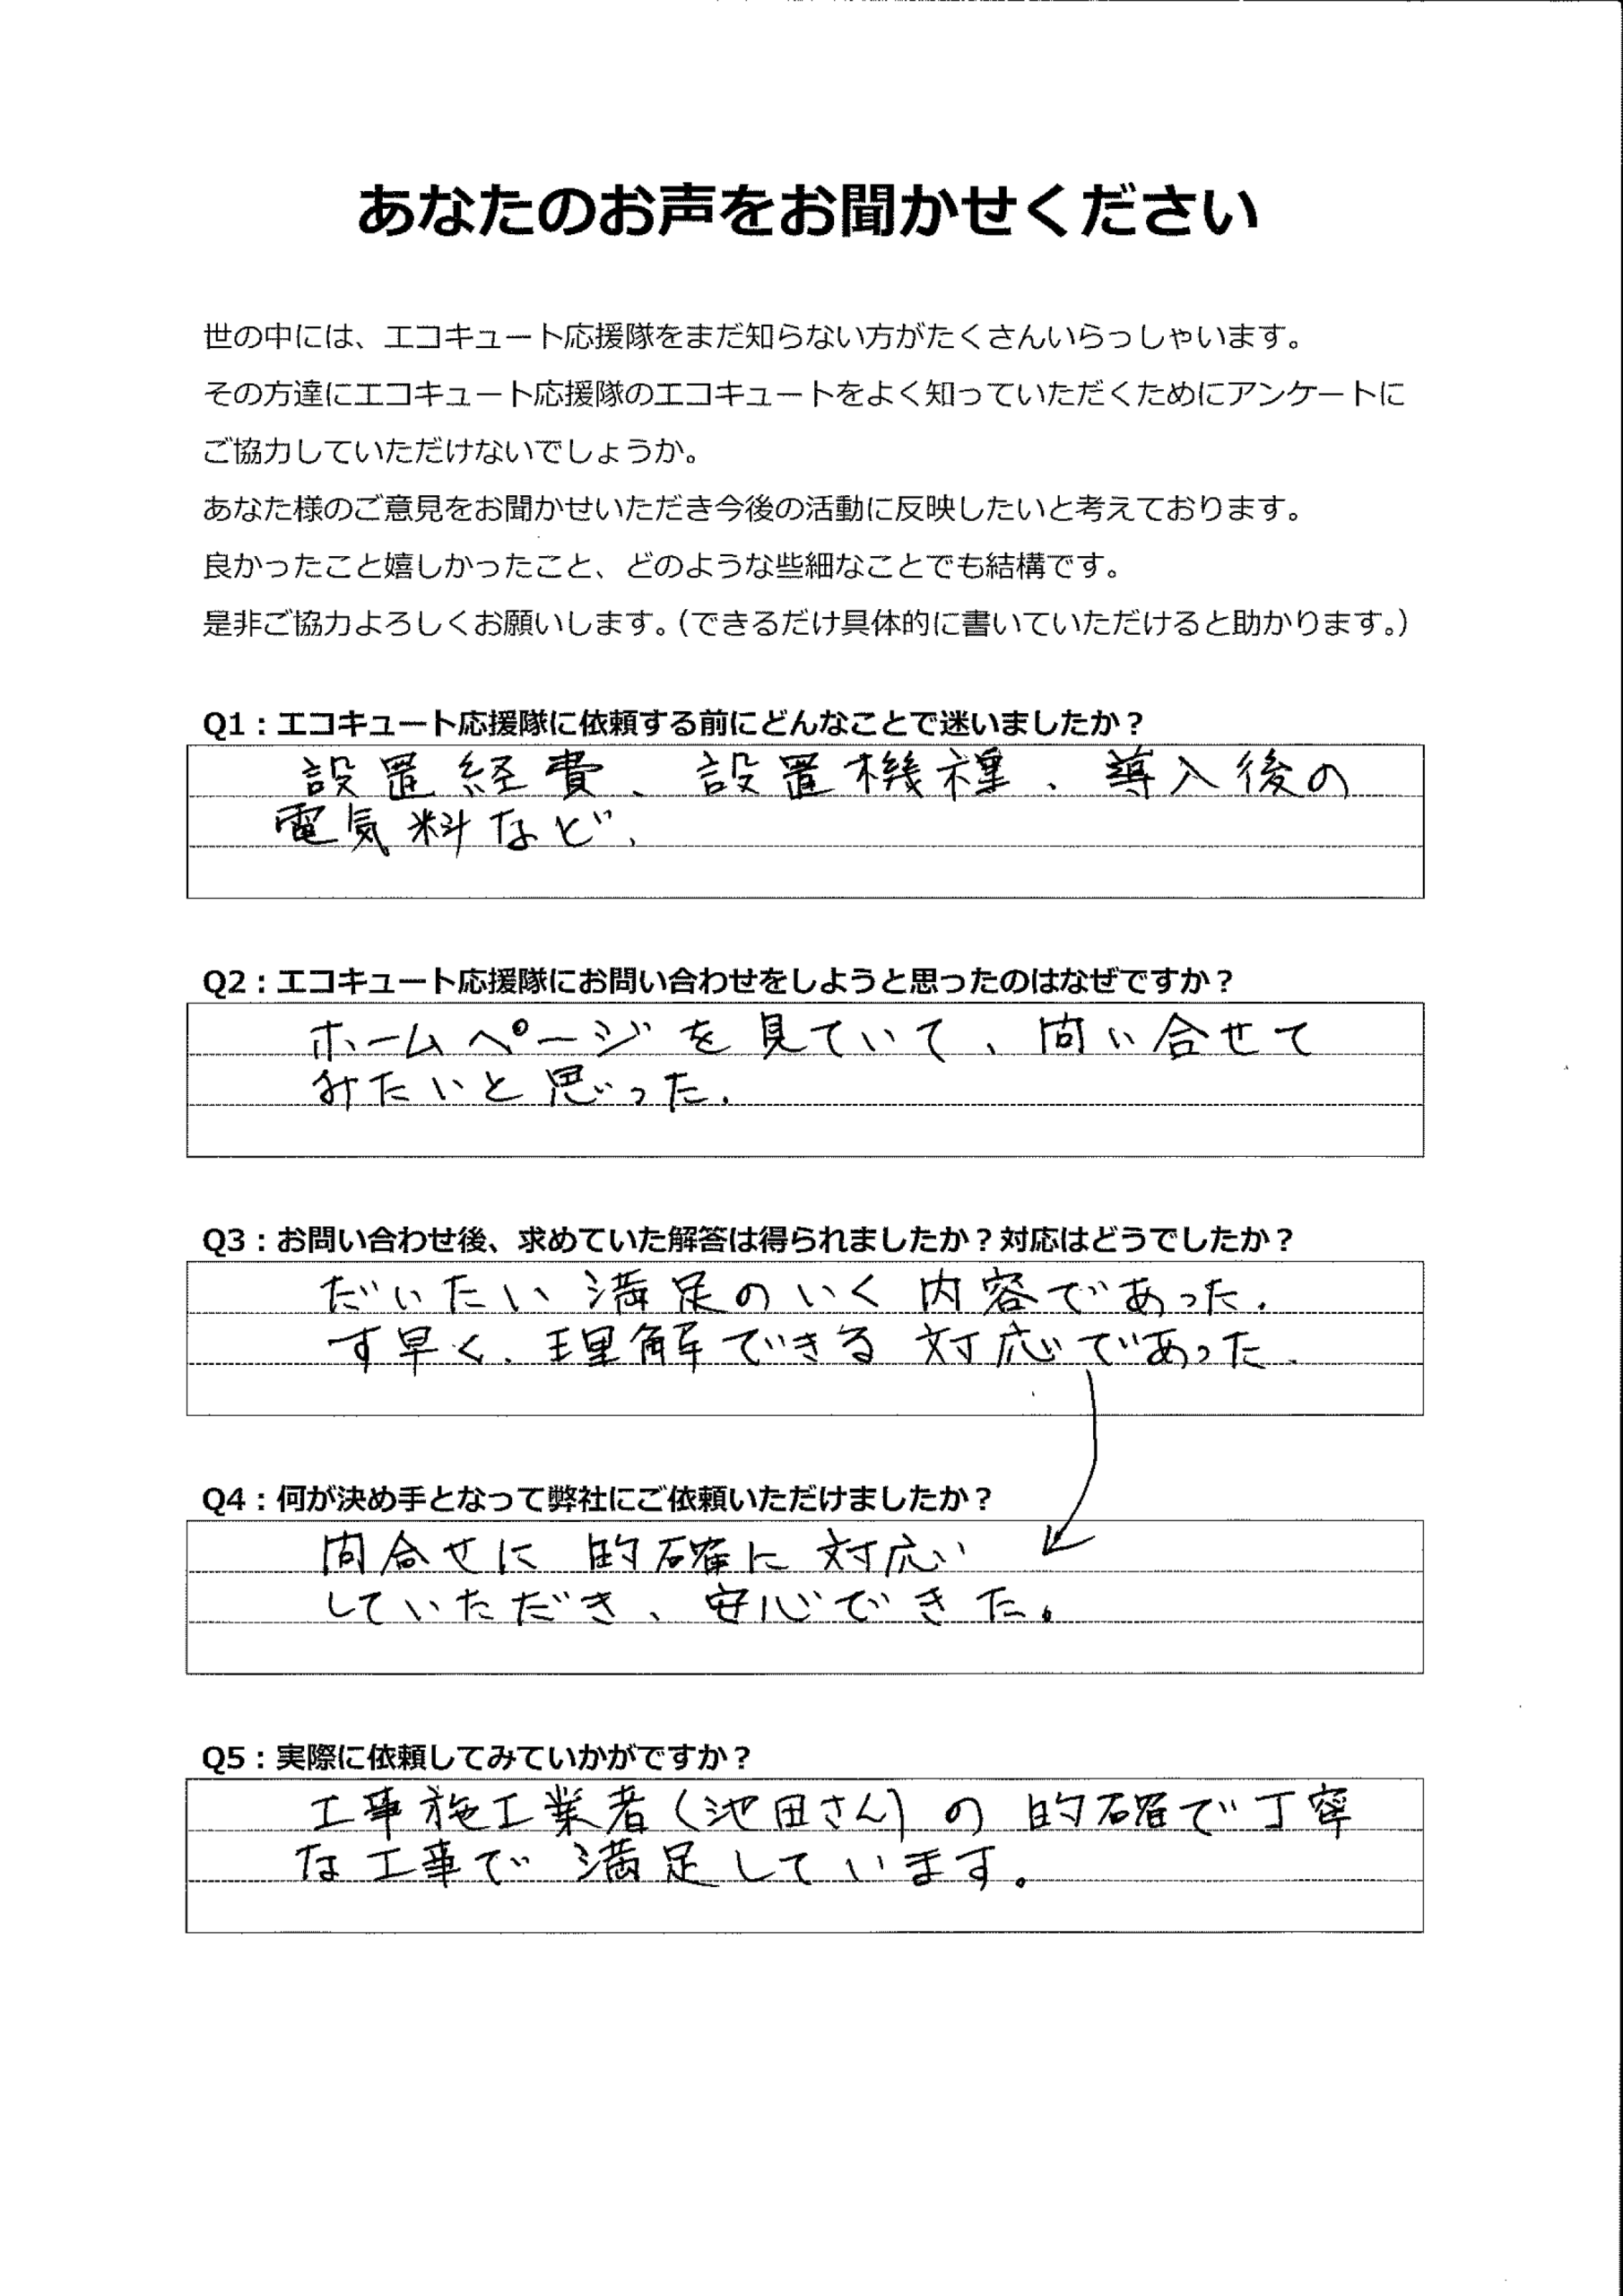 あなたのお声をお聞かせください
世の中には、エコキュート応援隊をまだ知らない方がたくさんいらっしゃいます。
その方達にエコキュート応援隊のエコキュートをよく知っていただくためにアンケートに
ご協力していただけないでしょうか。
あなた様のご意見をお聞かせいただき今後の活動に反映したいと考えております。
良かったこと嬉しかったこと、どのような些細なことでも結構です。
是非ご協力よろしくお願いします。（できるだけ具体的に書いていただけると助かります。）
Q1：エコキュート応援隊に依頼する前にどんなことで迷いましたか？
設置経費、設置機種、導入後の
電気料など、
Q2：エコキュート応援隊にお問い合わせをしようと思ったのはなぜですか？
ホームページを見ていて、問い合せて
みたいと思った。
Q3：お問い合わせ後、求めていた解答は得られましたか？対応はどうでしたか？
だいたい満足のいく内容であった。
す早く、理解できる対応であった。
Q4：何が決め手となって弊社にご依頼いただけましたか？
問合せに的確に対応
していただき、安心できた。
Q5：実際に依頼してみていかがですか？
工事施工業者（池田さん）の的確で丁寧
な工事で満足しています。